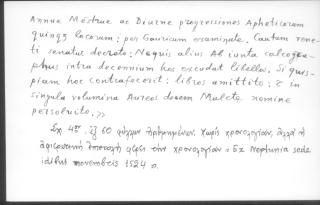 Annue Mestrue ac Diurne progressiones Apheticorum
quinq3 locorum: per Gauricum examinate. Cautum Vene-
ti senatus decreto: Nequis alius Ab iunta calcogra-
phus intra decennium hos excudat libellos. Si quis-
piam hoc contrafecerit: libros amittito: & in
singula volumina Aureos decem Mulcte nomine
persoluito. »
Σχ. 4ον. ἐξ 60 φύλλων ἠριθμημένων. χωρὶς χρονολογίαν, ἀλλὰ ἡ
ἀφιερωτικὴ ἐπιστολὴ φέρει τὴν χρονολογίαν « Ex Neptunia sede
idibus novembris 1524 ».